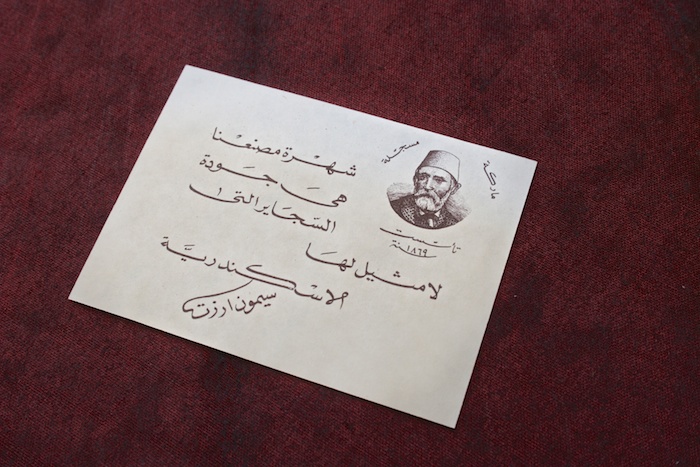 ماركة مسجلة
تأسست
سنة ١٨٦٩
شهرة مصنعنا
هى جودة
السجاير التى
لا مثيل لها
الاسكندرية
سيمون ارزت